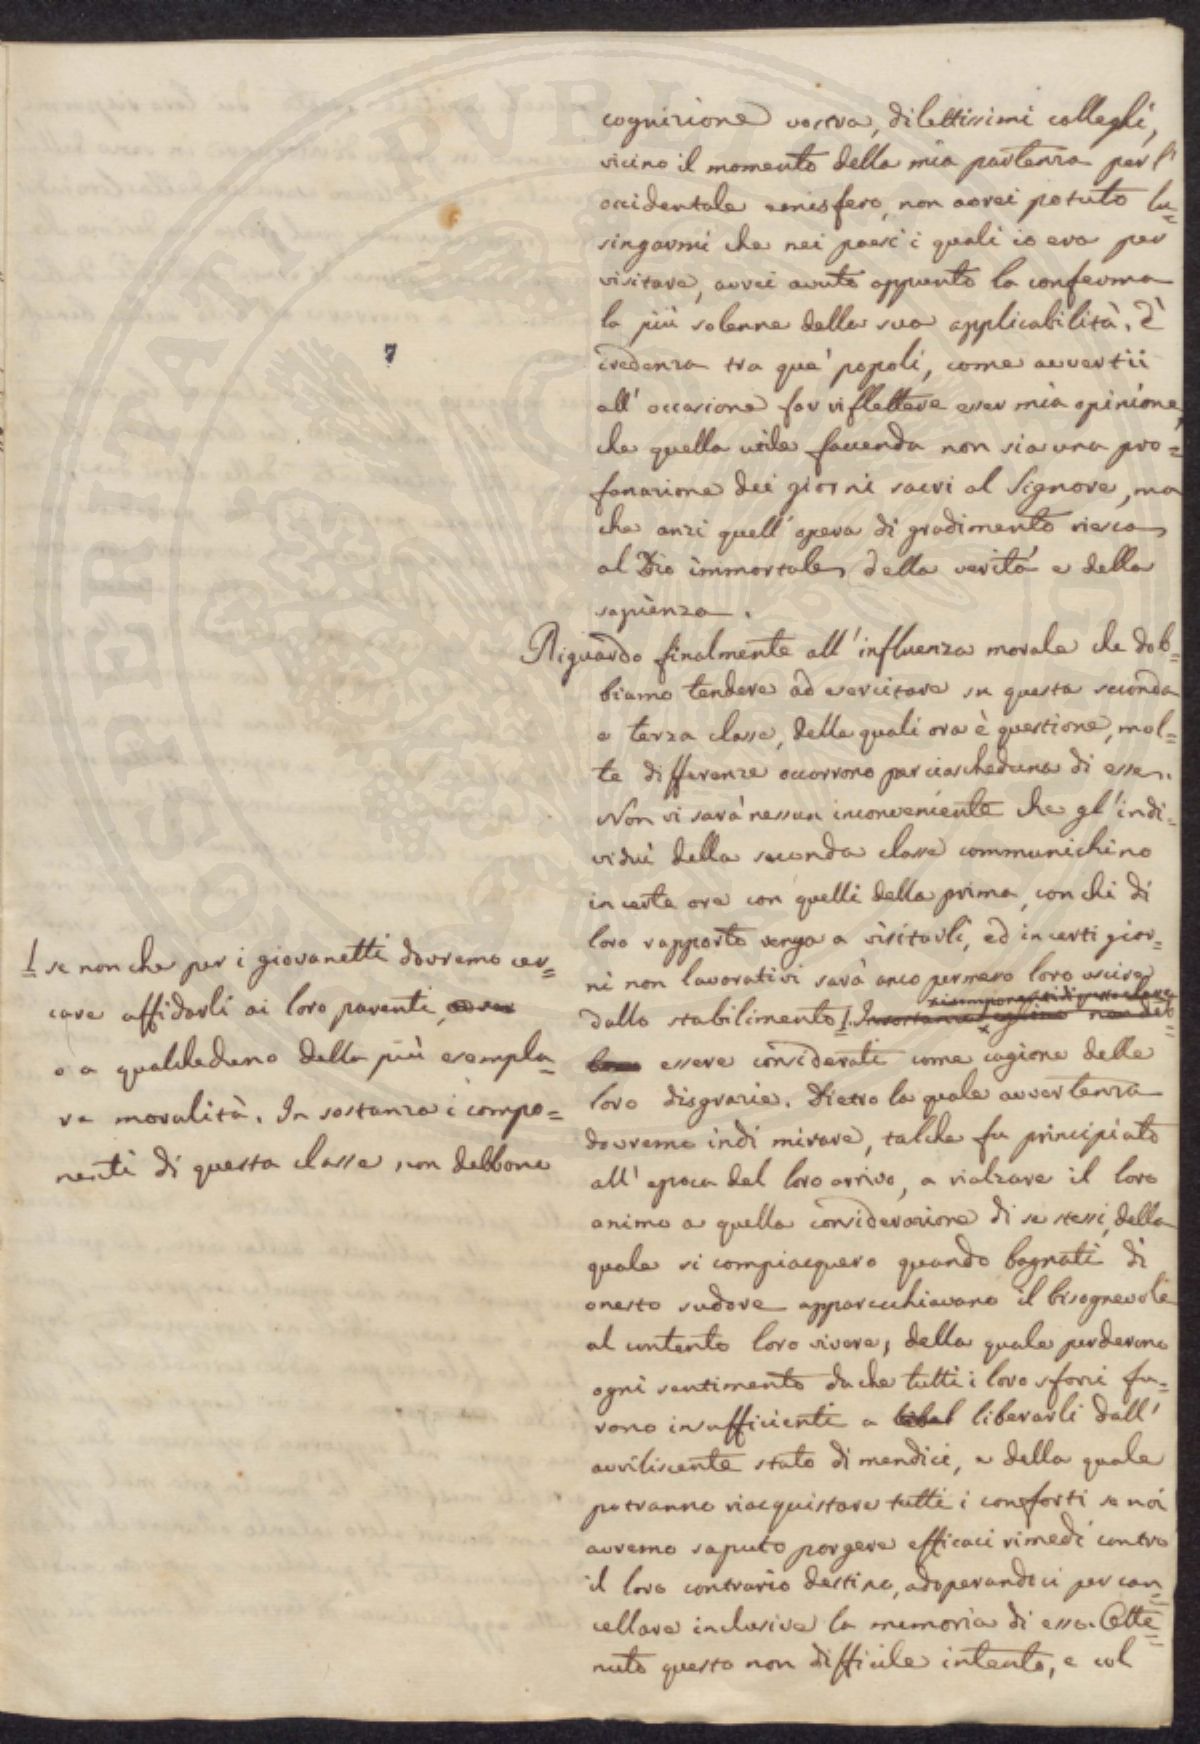 cognizione vostra, dilettissimi collegli,
vicino il momento della mia partenza per l'
occidentale emisfero, non avrei potuto lu=
singarmi che nei paesi i quali io era per
visitare, avrei avuto appunto la conferma
la più solenne della sua applicabilità. È
credenza tra que' popoli, come avvertii
all' occasione far riflettere esser mia opinione,
che quella utile faccenda non sia una pro=
fanazione dei giorni sacri al Signore, ma
che anzi quell' opera di gradimento riesca
al Dio immortale, della verità e della
sapienza.
Riguardo finalmente all' influenza morale che dob=
biamo tendere ad esercitare su questa seconda
e terza classe, delle quali ora è questione, mol=
te differenze occorrono per ciascheduna di esse.
Non vi sarà nessun inconveniente che gl' indi=
vidui della seconda classe communichino
in certe ore con quelli della prima, con chi di
loro rapporto venga a visitarli, ed in certi gior=
ni non lavorativi sarà anco permesso loro uscire
dallo stabilimento /. In sostanza eglino non deb=
bono essere considerati come cagione delle
loro disgrazie. Dietro la quale avvertenza
dovremo indi mirare, talchè fu principiato
all' epoca del loro arrivo, a rialzare il loro
animo a quella considerazione di se stessi, della
quale si compiacquero quando bagnati di
onesto sudore apparecchiavano il bisognevole
al contento loro vivere, della quale perderono
ogni sentimento da che tutti i loro sforzi fu=
rono insufficienti a liberarli dall'
avviliscente stato di mendici, e della quale
potranno riacquistare tutti i conforti se noi
avremo saputo porgere efficaci rimedi contro
il loro contrario destino, adoperandoci per can=
cellare inclusive la memoria di esso. Otte=
nuto questo non difficile intento, e col
/ se non che per i giovanetti dovremo cer=
care affidarli ai loro parenti
o a qualcheduno della più esempla=
re moralità. In sostanza i compo=
nenti di questa classe non debbono
7
SPERITANI PVBLI